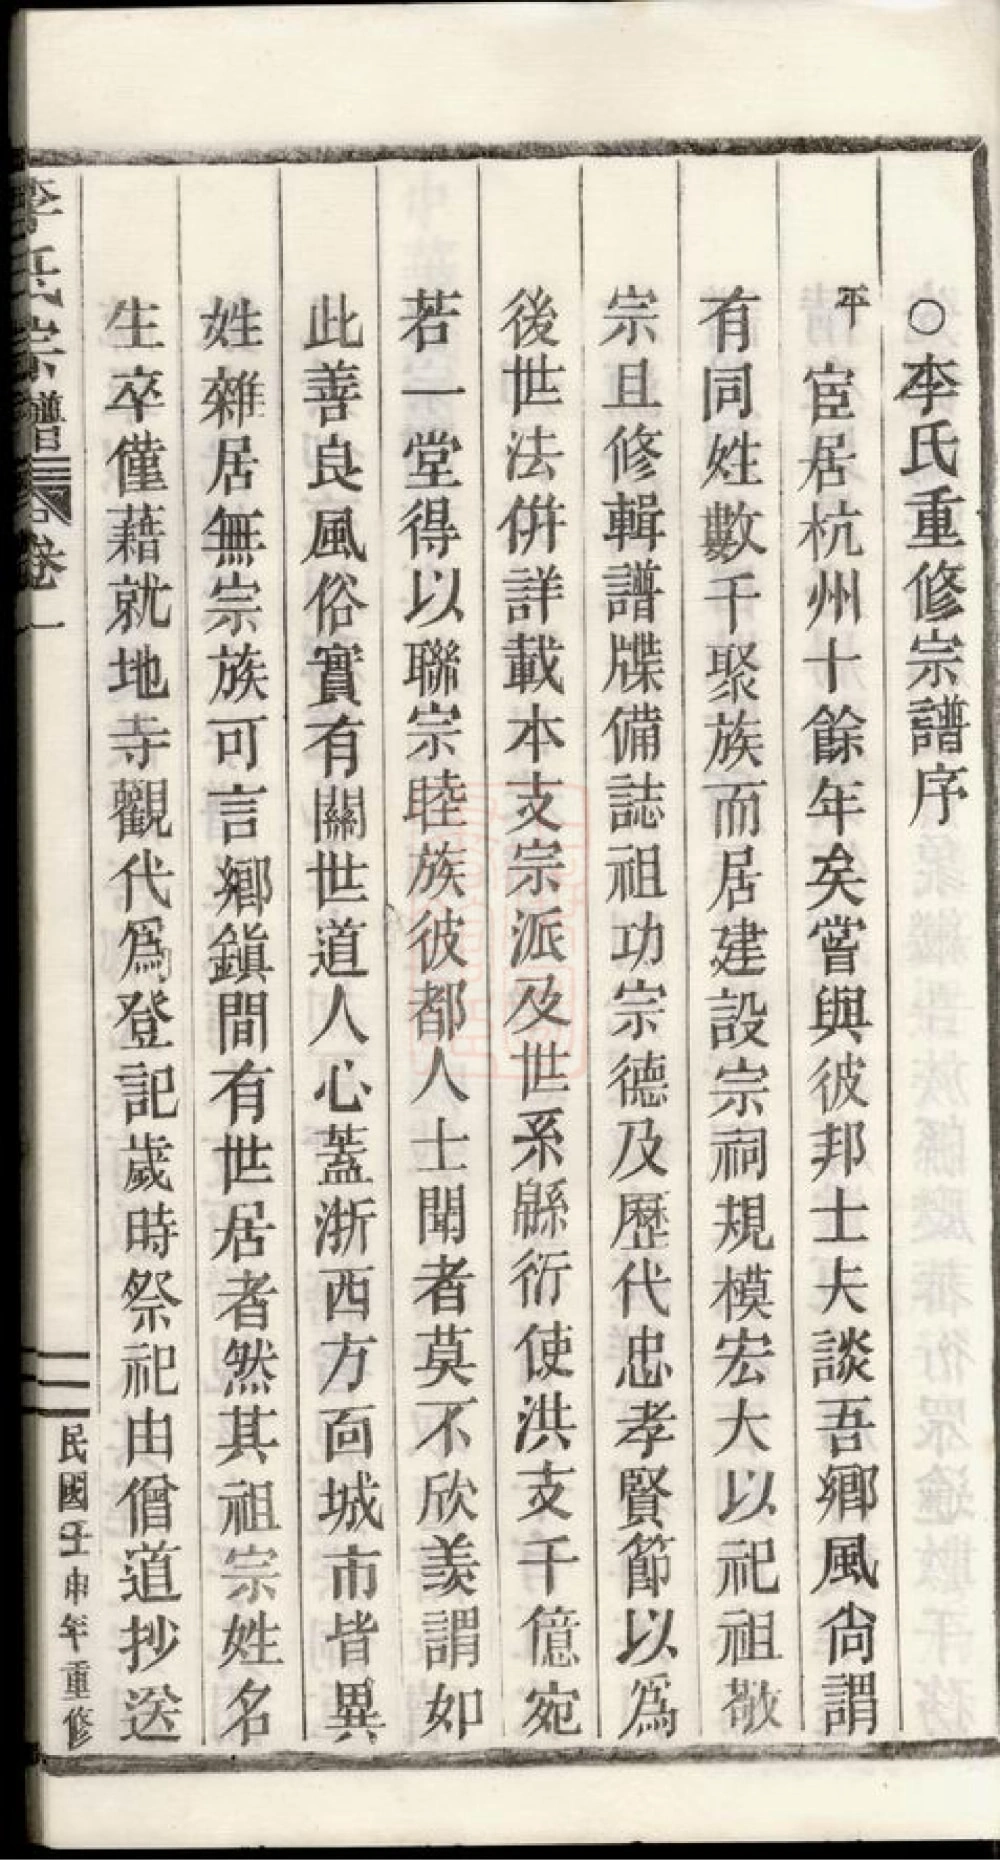 ○李氏重修宗譜序
平宦居杭州十餘年矣嘗與彼邦士夫談吾鄉風尙謂
有同姓數千聚族而居建設宗祠規模宏大以祀祖敬
宗且修輯譜牒備誌祖功宗德及歷代忠孝賢節以爲
後世法倂詳載本支宗派及世系緜衍使洪支千億宛
若一堂得以聯宗睦族彼都人士聞者莫不欣羨謂如
此善良風俗實有關世道人心蓋浙西方面城市皆異
姓雜居無宗族可言鄉鎭間有世居者然其祖宗姓名
生卒僅藉就地寺觀代爲登記歲時祭祀由僧道抄送
李氏宗譜 卷一 二 民國壬申年重修